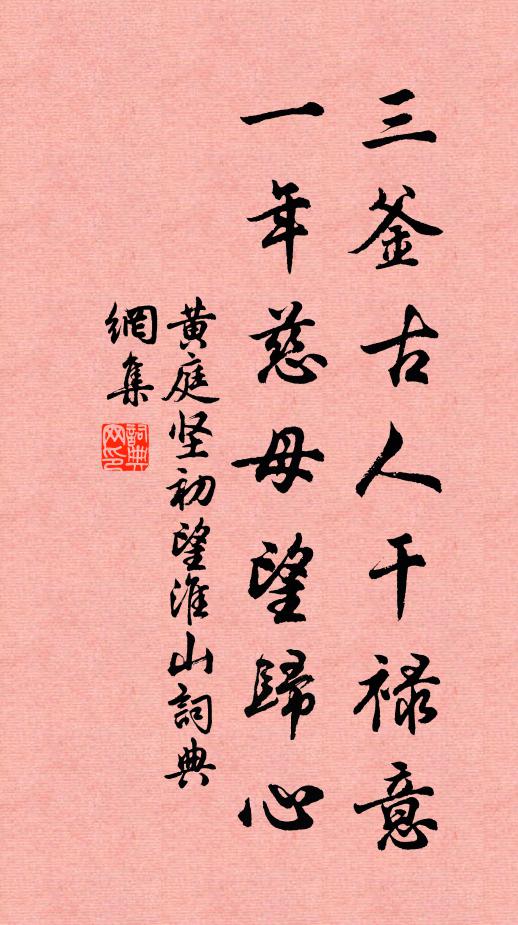 三釜古人干禄意
一年慈母望歸心
黄庭坚初望淮山詞典
網集
詞典
网印